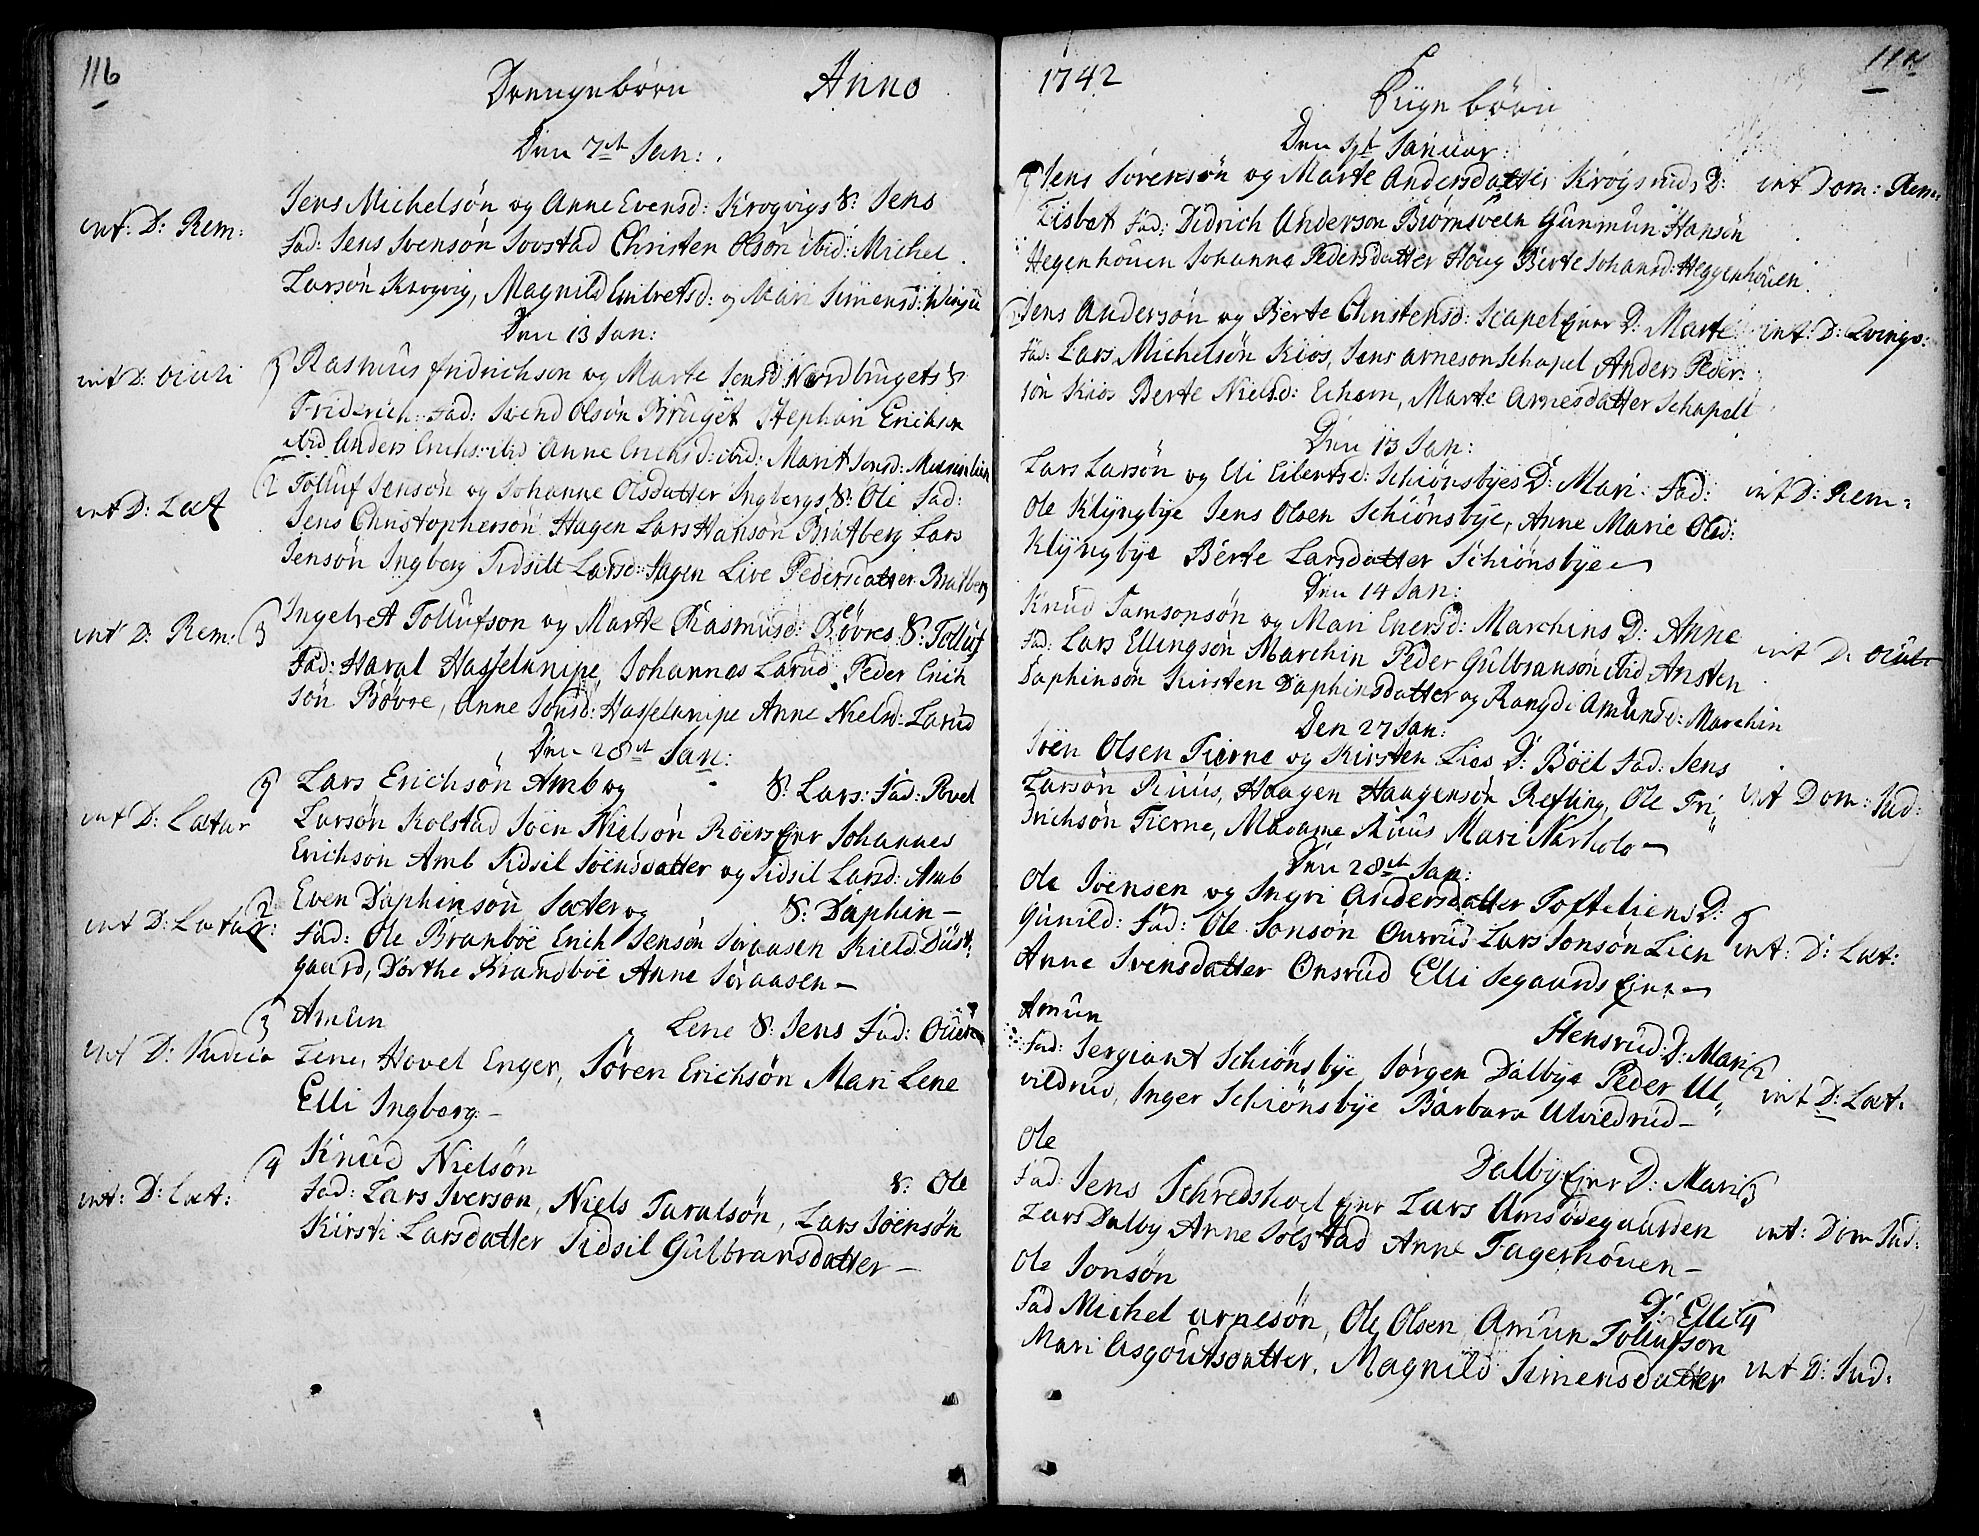 116
Drengebörn Anno
Den 7de Jan:
Jens Michelsön og Anne Evensd: Krogvigs S: Jens
int: D: Rem:
Fad: Jens Svensön Sovstad Christen Olsön ibid: Michel
Larsön Krogvig, Magnild Embretsd: og Mari Simensd:
Den 13 Jan:
int D: Oculi
1 Rasmus Fridrichson og Marte Jensd Nordbrugets S:
Friderich: Fad: Svend Olsön Bruget Stephan Erichsen
ibid Anders Erichs: ibid Anne Erichsd: ibid: Marit Jonsd:
int D: Læt
2 Tolluf Jensön og Johanne Olsdatter Ingbergs S: Ole Fad:
Jens Christophersön Hagen Lars Hansön Bratberg Lars
Jensön Ingberg Sidsill Larsd: Hagen Live Pedersdatter Bratberg
int D: Rem:
3 Ingebret Tollufson og Marte Rasmusd: Bövres S: Tolluf
Fad: Haral Hasselknipe Johannes Larud Peder Erich
sön Bövre, Anne Jonsd: Hasselknipe Anne Nielsd: Larud
Den 28de Jan:
int D: Lætar
1 Lars Erichsön Amb og S: Lars: Fad: Povel
Larsön Kolstad Joen Nielsön Röers Ejer Johannes
Erichsön Amb Sidsil Joensdatter og Sidsil Larsd: Amb
int D: Lætar:
2 Even Daphinsön Sæter og S: Daphin –
Fad: Ole Branböe Erich Jensön Soraasen Kield Düst
gaard, Dorthe Brandböe Anne Soraasen –
int D: Judica
3 Amun Lene S: Jens Fad:
Lene, Hovel Enger, Sören Erichsön Mari Lene
Elli Ingberg –
int: D: Læt:
4 Knud Nielsön S: Ole
Fad: Lars Iverson, Niels Taralsön, Lars Joensön
Kirsti Larsdatter Sidsil Gulbransdatter –
1742
117
Pigebörn
Den 1st Januar:
1 Jens Sörensön og Marte Andersdatter Krogsrud: D: int Dom: Rem:
Lisbet Fad: Didrich Anderson Biörnsveen Gunmun Hansön
Hegenhouen Johanne Pedersdatter Houg Berte Johansd: Heggenhouen.
2 Jens Andersön og Berte Christensd: Scapel Ejer D: Marte int: D:
Fad: Lars Michelsön Kios, Jens Arneson Schapel Anders Peder:
sön Kios Berte Nielsd: Echern, Marte Arnesdatter Schapell
Den 13 Jan:
Lars Larsön og Eli Eilertsd: Schiönsbyes D: Mari: Fad: int D: Rem:
Ole Klyngbye Jens Olsen Schiönsbye, Anne Marie Olsd:
Klyngbye Berte Larsdatter Schiönsbye –
Den 14 Jan:
Knud Samsonsön og Mari Enersd: Marchins D: Anne
Fad: Lars Ellingsön Marchin Peder Gulbransön ibid Ansten int D: Ocul:
Daphinsön Kirsten Daphinsdatter og Rangdi Amunsd: Marchin
Den 27 Jan:
Joen Olsen Tierne og Kirsten Lies D: Böel Fad: Jens
Larsön Ruus, Haagen Haagensön Refling, Ole Fri„ int Dom: Jud:
Drichsön Tierne, Madame Ruus Mari Narholo –
Den 28de Jan:
Ole Joensen og Ingri Andersdatter Tofteliens D: 1
Gunild: Fad: Ole Jonsön Onsrud Lars Jonsön Lien int: D: Læt:
Anne Svensdatter Onsrud Elli Segaards Ejer –
Amun Hensrud: D: Mari 2
Fad: Sergiant Schiönsbye Jörgen Dalbye Peder Ul„ int D: Læt:
vildrud, Inger Schiönsbye Barbara Ulvildrud –
Ole Dalby Ejer D: Mari 3
Fad: Jens Schredshoel Ejer Lars Amsödegaarden
Lars Dalby Anne Solstad Anne Fagerhouen – int: Dom Jud:
Ole Jonsön D: Elli 4
Fad Michel Arnesön, Ole Olsen Amun Tollufson
Mari Asgoutsdatter, Magnild Simensdatter int D: Jud: